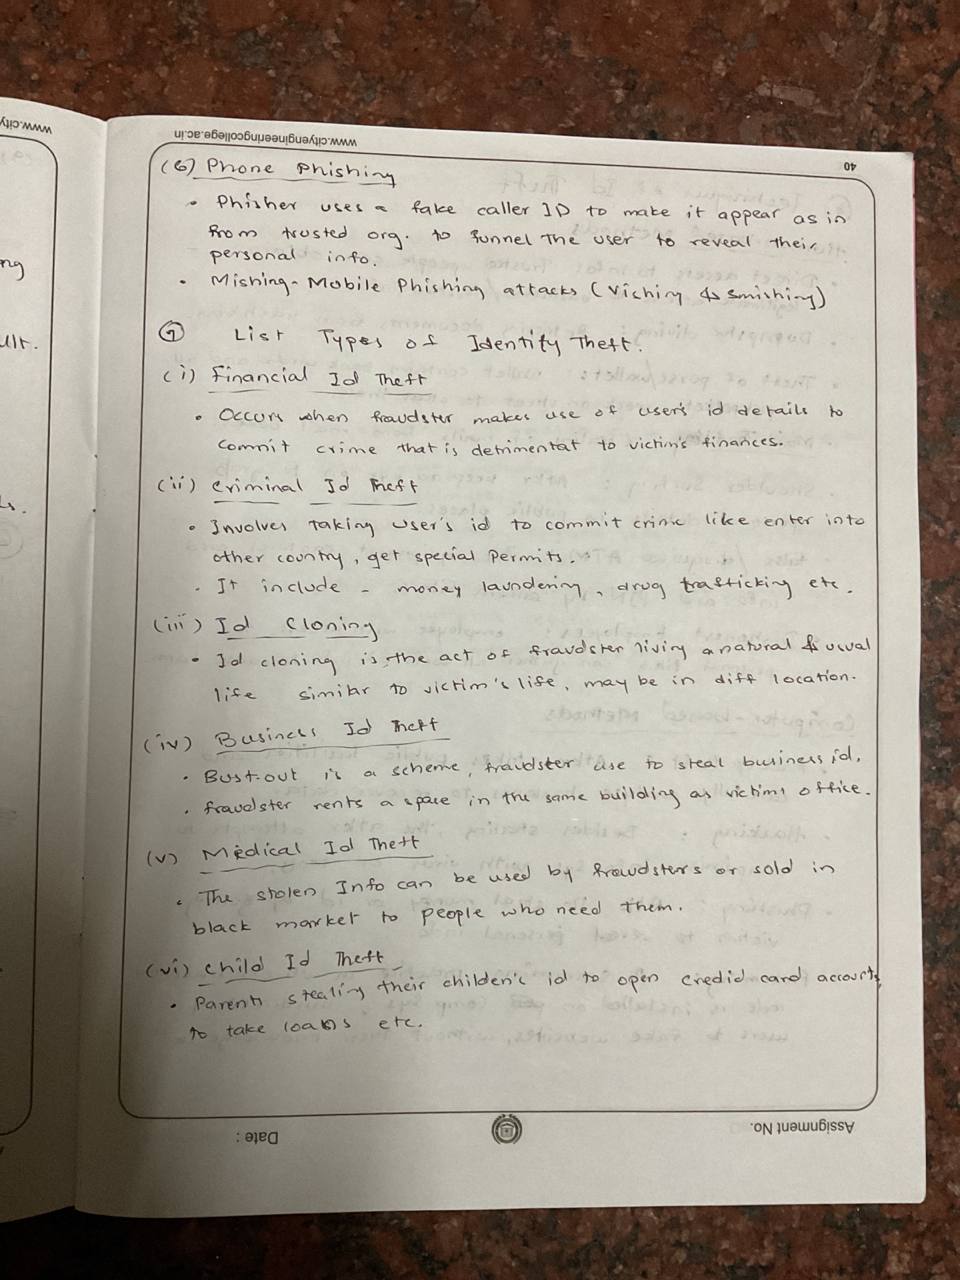 www.cityengineeringcollege.ac.in
40
(6) Phone Phishing
• Phisher uses a fake caller ID to make it appear as in
from trusted org. to funnel the user to reveal their
personal info.
• Mishing - Mobile Phishing attacks (Vishing & smishing)
⑦ List Types of Identity Theft.
(i) Financial Id Theft
• Occurs when fraudster makes use of user's id details to
commit crime that is detrimental to victim's finances.
(ii) Criminal Id Theft
• Involves taking user's id to commit crime like enter into
other country, get special Permits.
• It include - money laundering, drug trafficking etc.
(iii) Id Cloning
• Id cloning is the act of fraudster living a natural & usual
life similar to victim's life, may be in diff location.
(iv) Business Id Theft
• Bust-out is a scheme, fraudster use to steal business id,
• fraudster rents a space in the same building as victims office.
(v) Medical Id Theft
• The stolen Info can be used by fraudsters or sold in
black market to people who need them.
(vi) Child Id Theft
• Parents stealing their childen's id to open credid card accounts
to take loans etc.
Assignment No.
Date :
www.city
ng
ult.